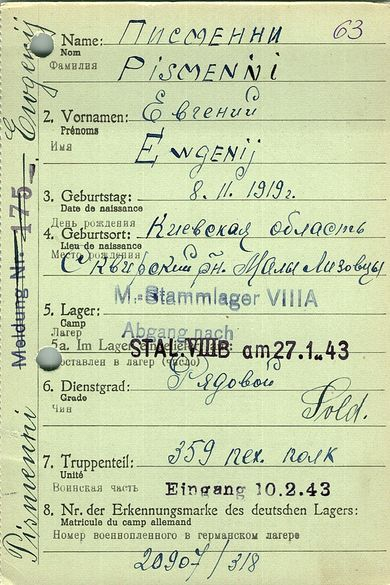 63
1. Name: Писменни
Nom
Фамилия Pismenni
2. Vornamen: Евгений
Prénoms
Имя Ewgenij
3. Geburtstag: 8. 11. 1919г.
Date de naissance
День рождения
4. Geburtsort: Киевская область
Lieu de naissance
Место рождения
Сквирский рн. Малы Лизовцы
M.-Stammlager VIIIA
5. Lager:
Camp
Лагер
Abgang nach
5a. Im Lager
STAL. VIIIB am 27.1..43
доставлен в лагер (число)
6. Dienstgrad: Рядовой
Grade
Чин
Sold.
7. Truppenteil: 359 пех. полк
Unité
Воинская часть Eingang 10.2.43
8. Nr. der Erkennungsmarke des deutschen Lagers:
Matricule du camp allemand
Номер военнопленного в германском лагере
20907/318
Pismenni
Meldung Nr. 175
Ewgenij